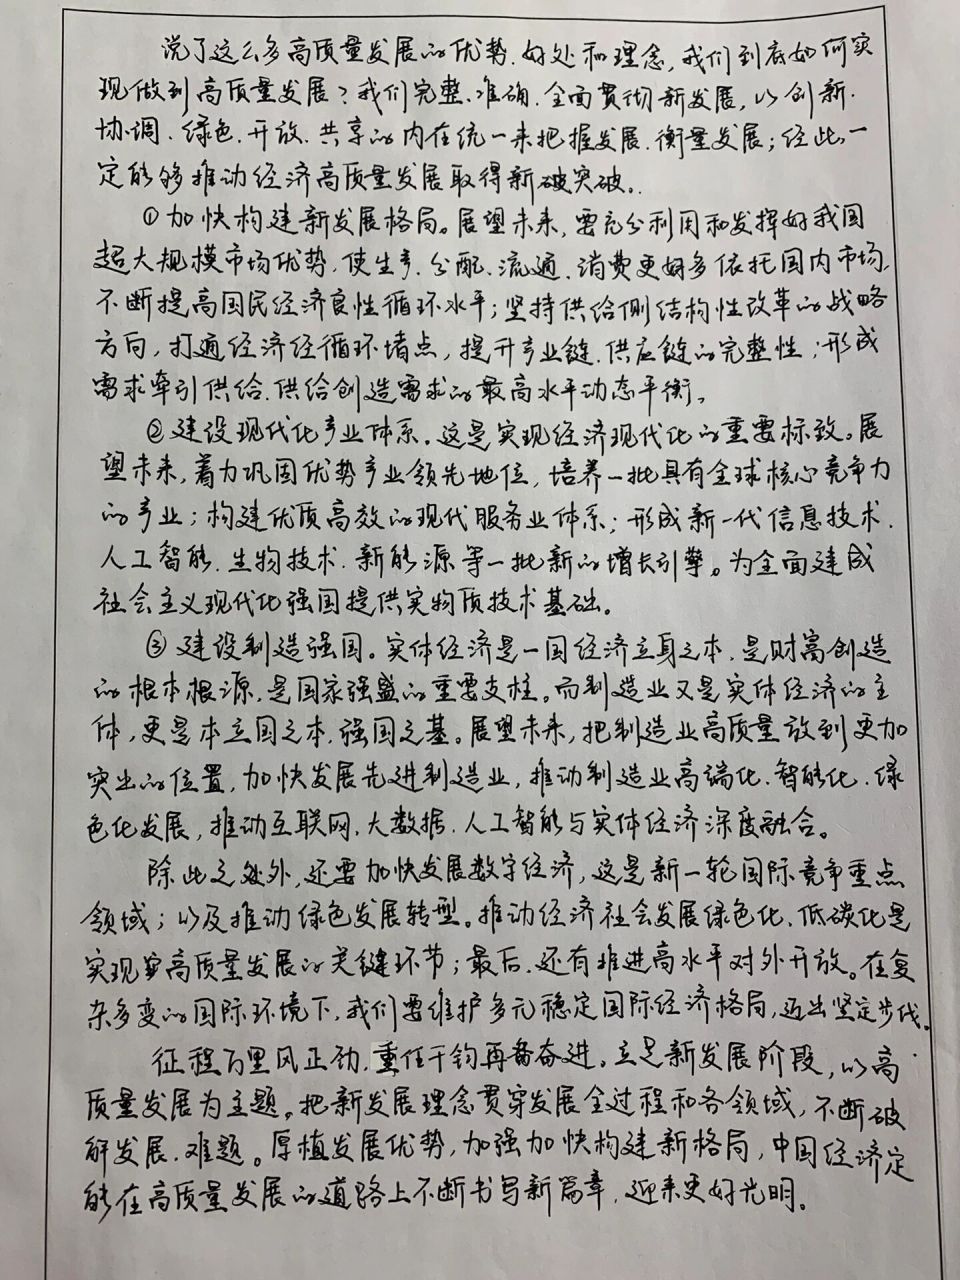 说了这么多高质量发展的优势、好处和理念,我们到底如何实
现做到高质量发展?我们完整、准确、全面贯彻新发展,以创新、
协调、绿色、开放、共享的内在统一来把握发展、衡量发展;经此,一
定能够推动经济高质量发展取得新破突破。
①加快构建新发展格局。展望未来,要充分利用和发挥好我国
超大规模市场优势,使生产、分配、流通、消费更好多依托国内市场,
不断提高国民经济良性循环水平;坚持供给侧结构性改革的战略
方向,打通经济经循环堵点,提升产业链、供应链的完整性,形成
需求牵引供给、供给创造需求的最高水平动态平衡。
②建设现代化产业体系。这是实现经济现代化的重要标致。展
望未来,着力巩固优势产业领先地位,培养一批具有全球核心竞争力
的产业;构建优质高效的现代服务业体系;形成新一代信息技术、
人工智能、生物技术、新能源等一批新的增长引擎。为全面建成
社会主义现代化强国提供实物质技术基础。
③建设制造强国。实体经济是一国经济立身之本,是财富创造
的根本根源,是国家强盛的重要支柱。而制造业又是实体经济的主
体,更是本立国之本,强国之基。展望未来,把制造业高质量放到更加
突出的位置,加快发展先进制造业,推动制造业高端化、智能化、绿
色化发展,推动互联网、大数据、人工智能与实体经济深度融合。
除此之处外,还要加快发展数字经济,这是新一轮国际竞争重点
领域;以及推动绿色发展转型。推动经济社会发展绿色化、低碳化是
实现高质量发展的关键环节;最后,还有推进高水平对外开放。在复
杂多变的国际环境下,我们要维护多元稳定国际经济格局,迈出坚定步伐。
征程万里风正劲,重任千钧再备奋进。立足新发展阶段,以高
质量发展为主题。把新发展理念贯穿发展全过程和各领域,不断破
解发展、难题。厚植发展优势,加强加快构建新格局,中国经济定
能在高质量发展的道路上不断书写新篇章,迎来更好光明。